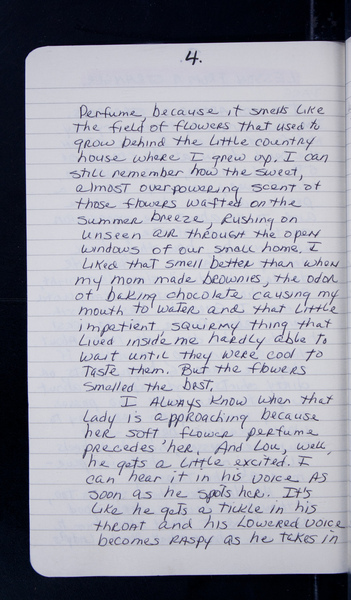 4.
Perfume, because it smells like
the field of flowers that used to
grow behind the little country
house where I grew up. I can
still remember how the sweet,
almost overpowering scent of
those flowers wafted on the
summer breeze, rushing on
unseen air through the open
windows of our small home. I
liked that smell better than when
my mom made brownies, the odor
of baking chocolate causing my
mouth to water and that little
impatient, squirmy thing that
lived inside me hardly able to
wait until they were cool to
taste them. But the flowers
smelled the best.
I always know when that
lady is approaching because
her soft flower perfume
precedes her. And Lou, well,
he gets a little excited. I
can hear it in his voice as
soon as he spots her. It's
like he gets a tickle in his
throat and his lowered voice
becomes raspy as he takes in